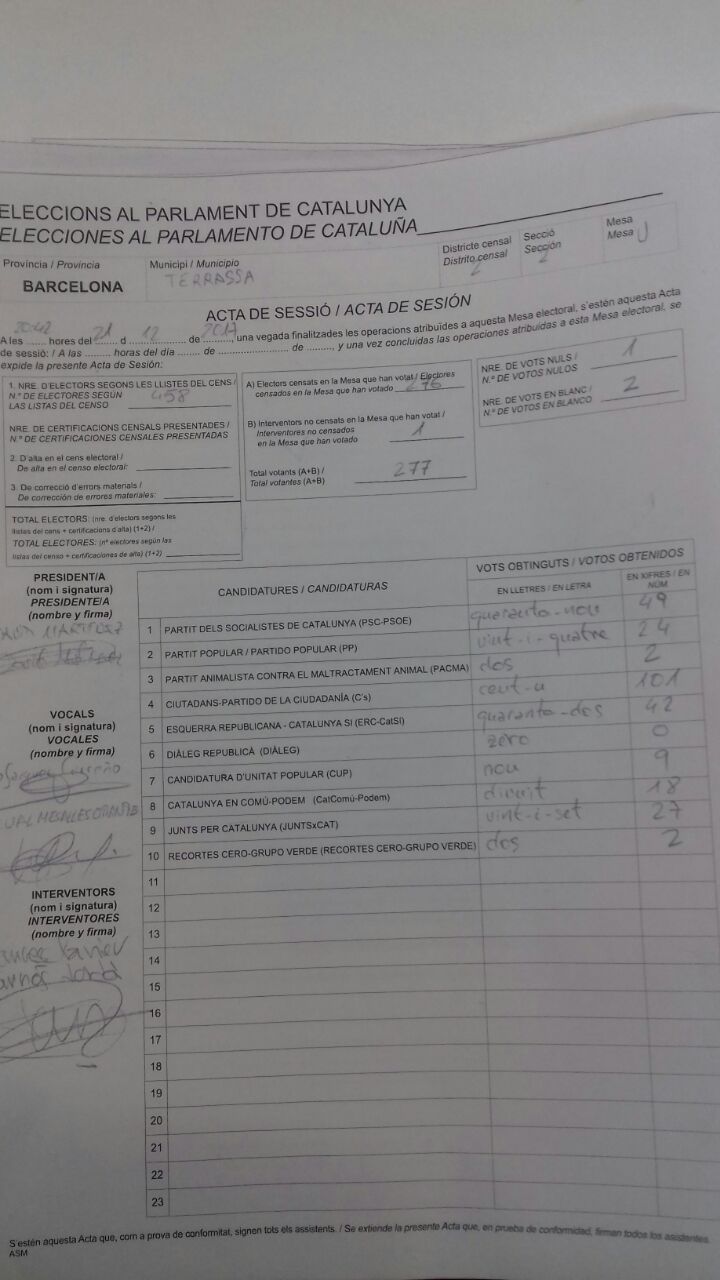 ELECCIONS AL PARLAMENT DE CATALUNYA
ELECCIONES AL PARLAMENTO DE CATALUÑA
Província / Provincia
BARCELONA
Municipi / Municipio
TERRASSA
Districte censal
Distrito censal
2
Secció
Sección
2
Mesa
Mesa U
ACTA DE SESSIÓ / ACTA DE SESIÓN
A les 20:42 hores del 21 d 12 de 2017, una vegada finalitzades les operacions atribuïdes a aquesta Mesa electoral, s'estén aquesta Acta
de sessió: / A las ........ horas del día ........ de ........................ de ........, y una vez concluidas las operaciones atribuidas a esta Mesa electoral, se
expide la presente Acta de Sesión:
1. NRE. D'ELECTORS SEGONS LES LLISTES DEL CENS /
N.º DE ELECTORES SEGÚN
LAS LISTAS DEL CENSO 458
NRE. DE CERTIFICACIONS CENSALS PRESENTADES /
N.º DE CERTIFICACIONES CENSALES PRESENTADAS
2. D'alta en el cens electoral /
De alta en el censo electoral:
3. De correcció d'errors materials /
De corrección de errores materiales:
TOTAL ELECTORS: (nre. d'electors segons les
llistes del cens + certificacions d'alta) (1+2) /
TOTAL ELECTORES: (nº electores según las
listas del censo + certificaciones de alta) (1+2)
A) Electors censats en la Mesa que han votat / Electores
censados en la Mesa que han votado 276
B) Interventors no censats en la Mesa que han votat /
Interventores no censados
en la Mesa que han votado 1
Total votants (A+B) /
Total votantes (A+B) 277
NRE. DE VOTS NULS /
N.º DE VOTOS NULOS 1
NRE. DE VOTS EN BLANC /
N.º DE VOTOS EN BLANCO 2
PRESIDENT/A
(nom i signatura)
PRESIDENTE/A
(nombre y firma)
VOCALS
(nom i signatura)
VOCALES
(nombre y firma)
INTERVENTORS
(nom i signatura)
INTERVENTORES
(nombre y firma)
Xavier
Jordà
CANDIDATURES / CANDIDATURAS
VOTS OBTINGUTS / VOTOS OBTENIDOS
EN LLETRES / EN LETRA
EN XIFRES / EN NÚM
1 PARTIT DELS SOCIALISTES DE CATALUNYA (PSC-PSOE) quaranta-nou 49
2 PARTIT POPULAR / PARTIDO POPULAR (PP) vint-i-quatre 24
3 PARTIT ANIMALISTA CONTRA EL MALTRACTAMENT ANIMAL (PACMA) dos 2
4 CIUTADANS-PARTIDO DE LA CIUDADANÍA (C's) cent-u 101
5 ESQUERRA REPUBLICANA - CATALUNYA SI (ERC-CatSI) quaranta-dos 42
6 DIÀLEG REPUBLICÀ (DIÀLEG) zero 0
7 CANDIDATURA D'UNITAT POPULAR (CUP) nou 9
8 CATALUNYA EN COMÚ-PODEM (CatComú-Podem) divuit 18
9 JUNTS PER CATALUNYA (JUNTSxCAT) vint-i-set 27
10 RECORTES CERO-GRUPO VERDE (RECORTES CERO-GRUPO VERDE) dos 2
11
12
13
14
15
16
17
18
19
20
21
22
23
S'estén aquesta Acta que, com a prova de conformitat, signen tots els assistents. / Se extiende la presente Acta que, en prueba de conformidad, firman todos los asistentes.
ASM